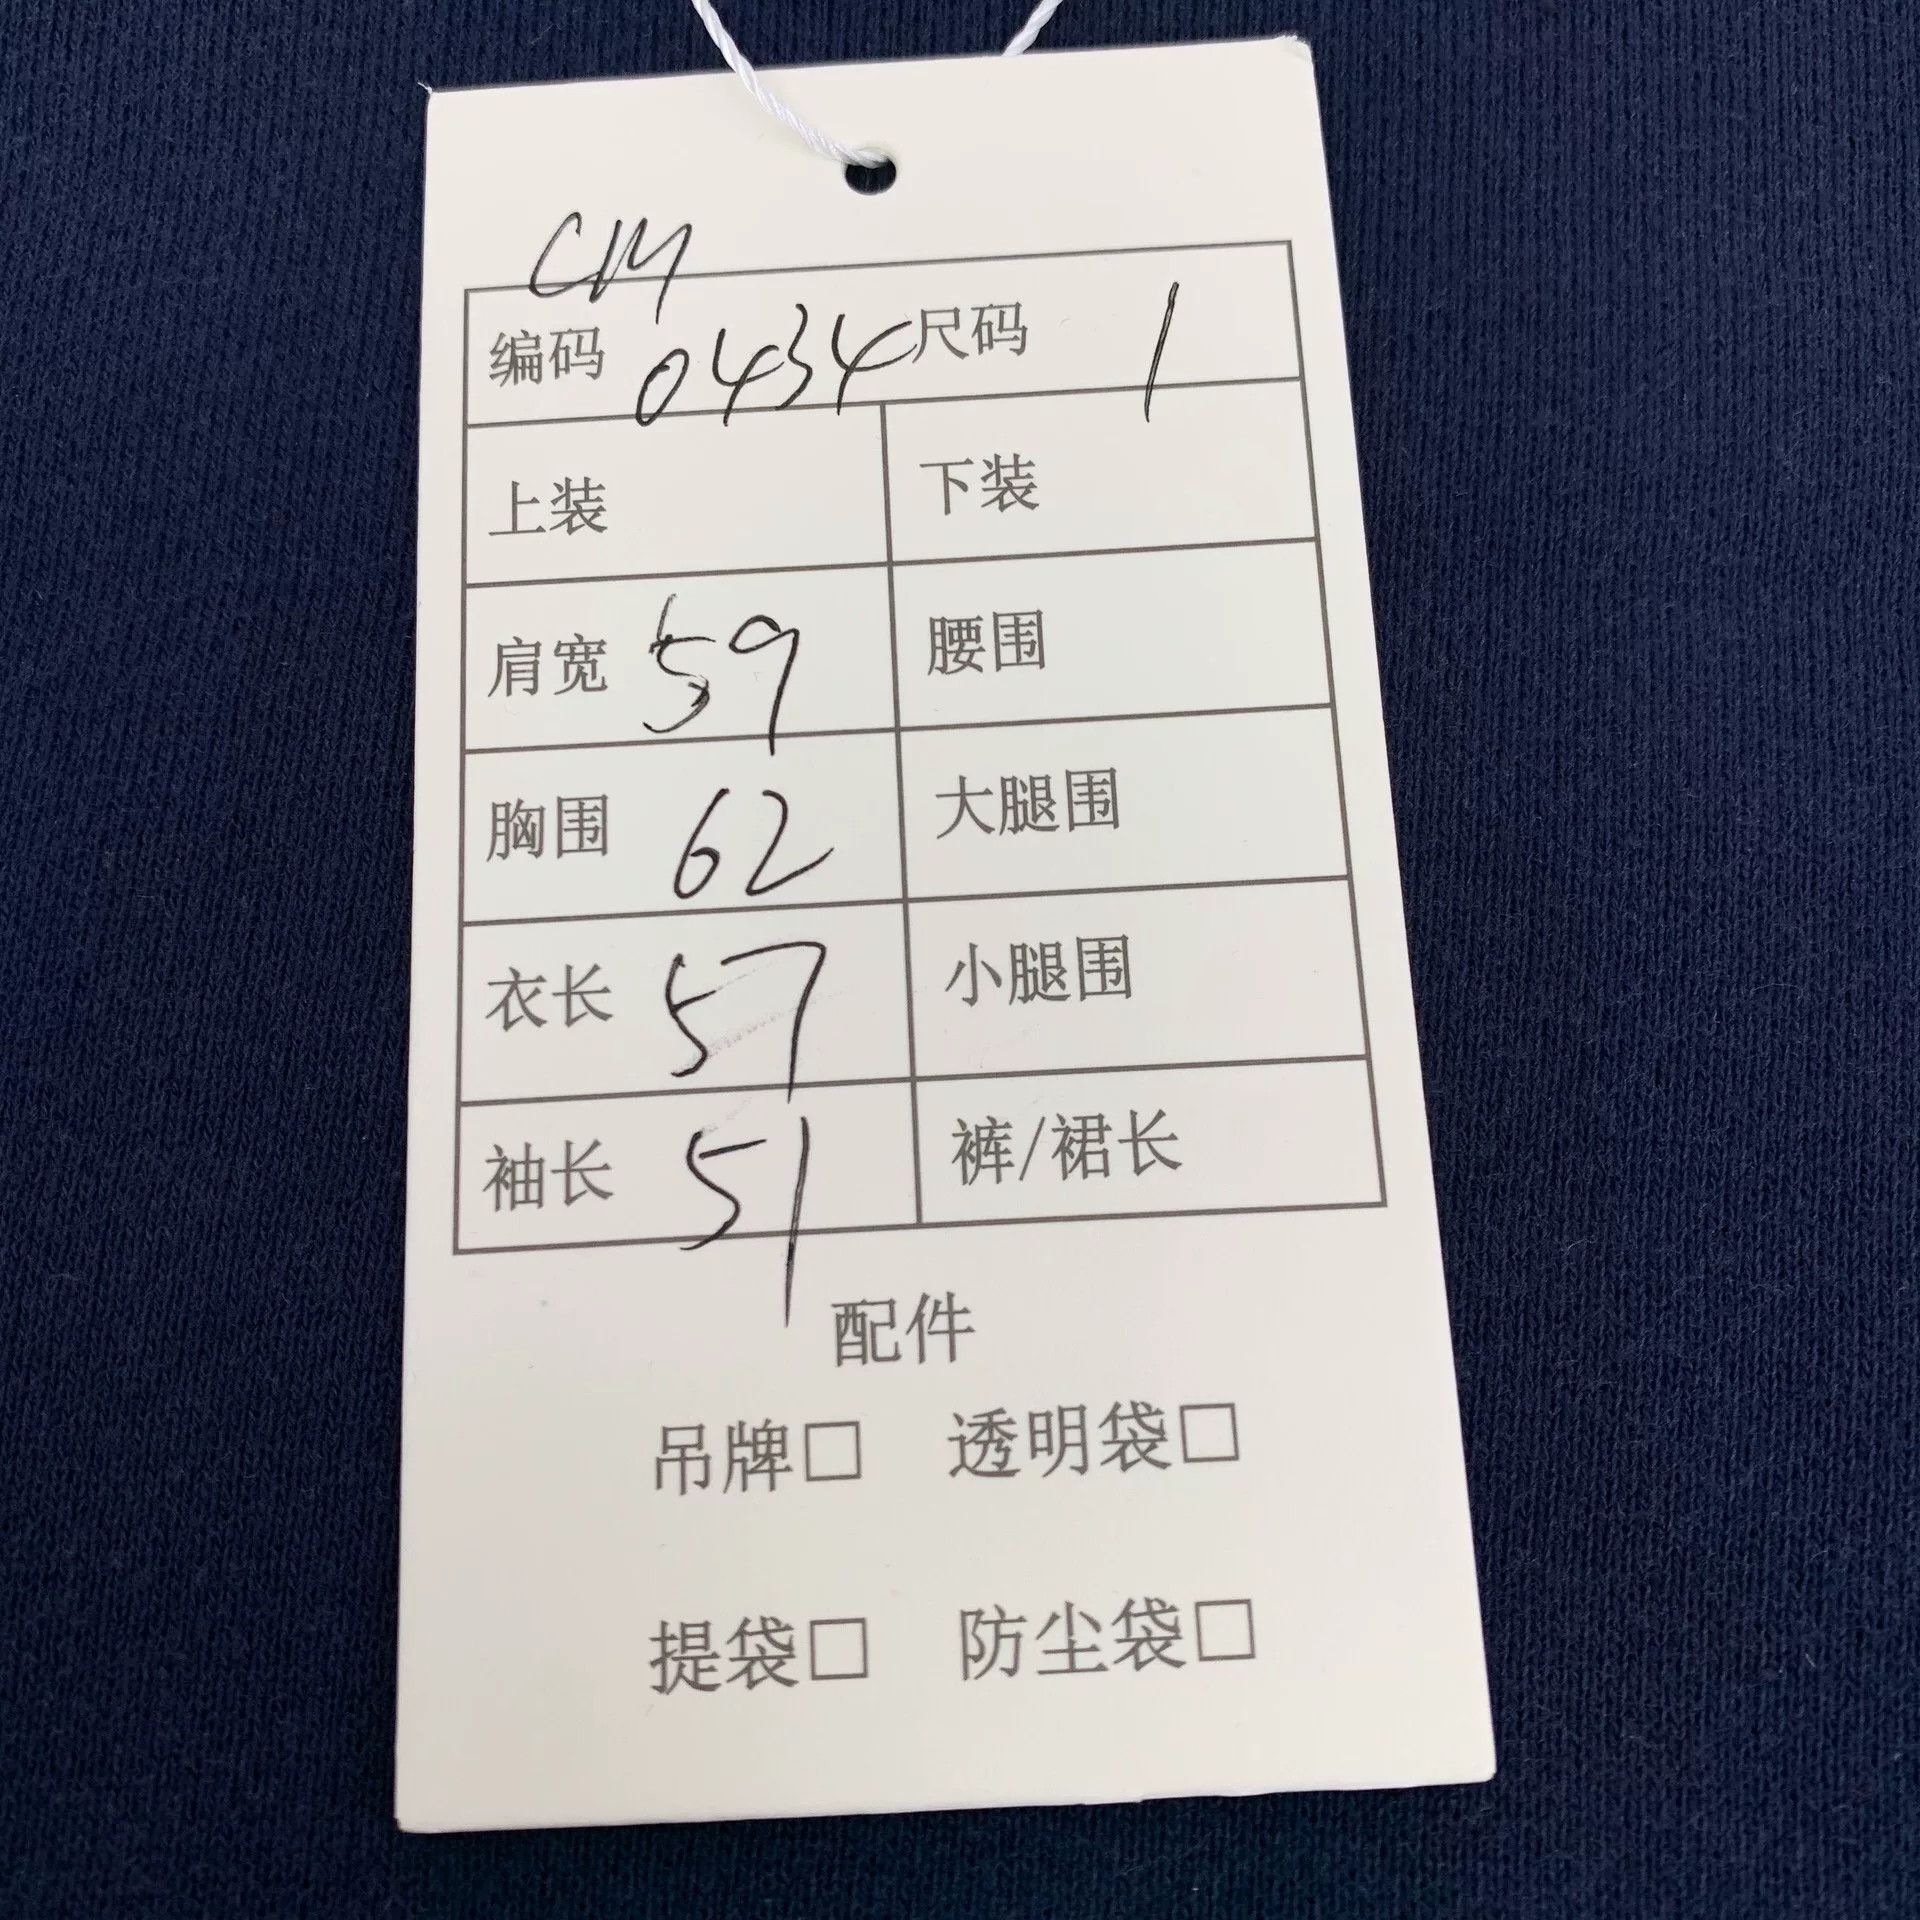 CM
编码 0434 尺码 1
上装 下装
肩宽 59 腰围
胸围 62 大腿围
衣长 57 小腿围
袖长 51 裤/裙长
配件
吊牌□ 透明袋□
提袋□ 防尘袋□